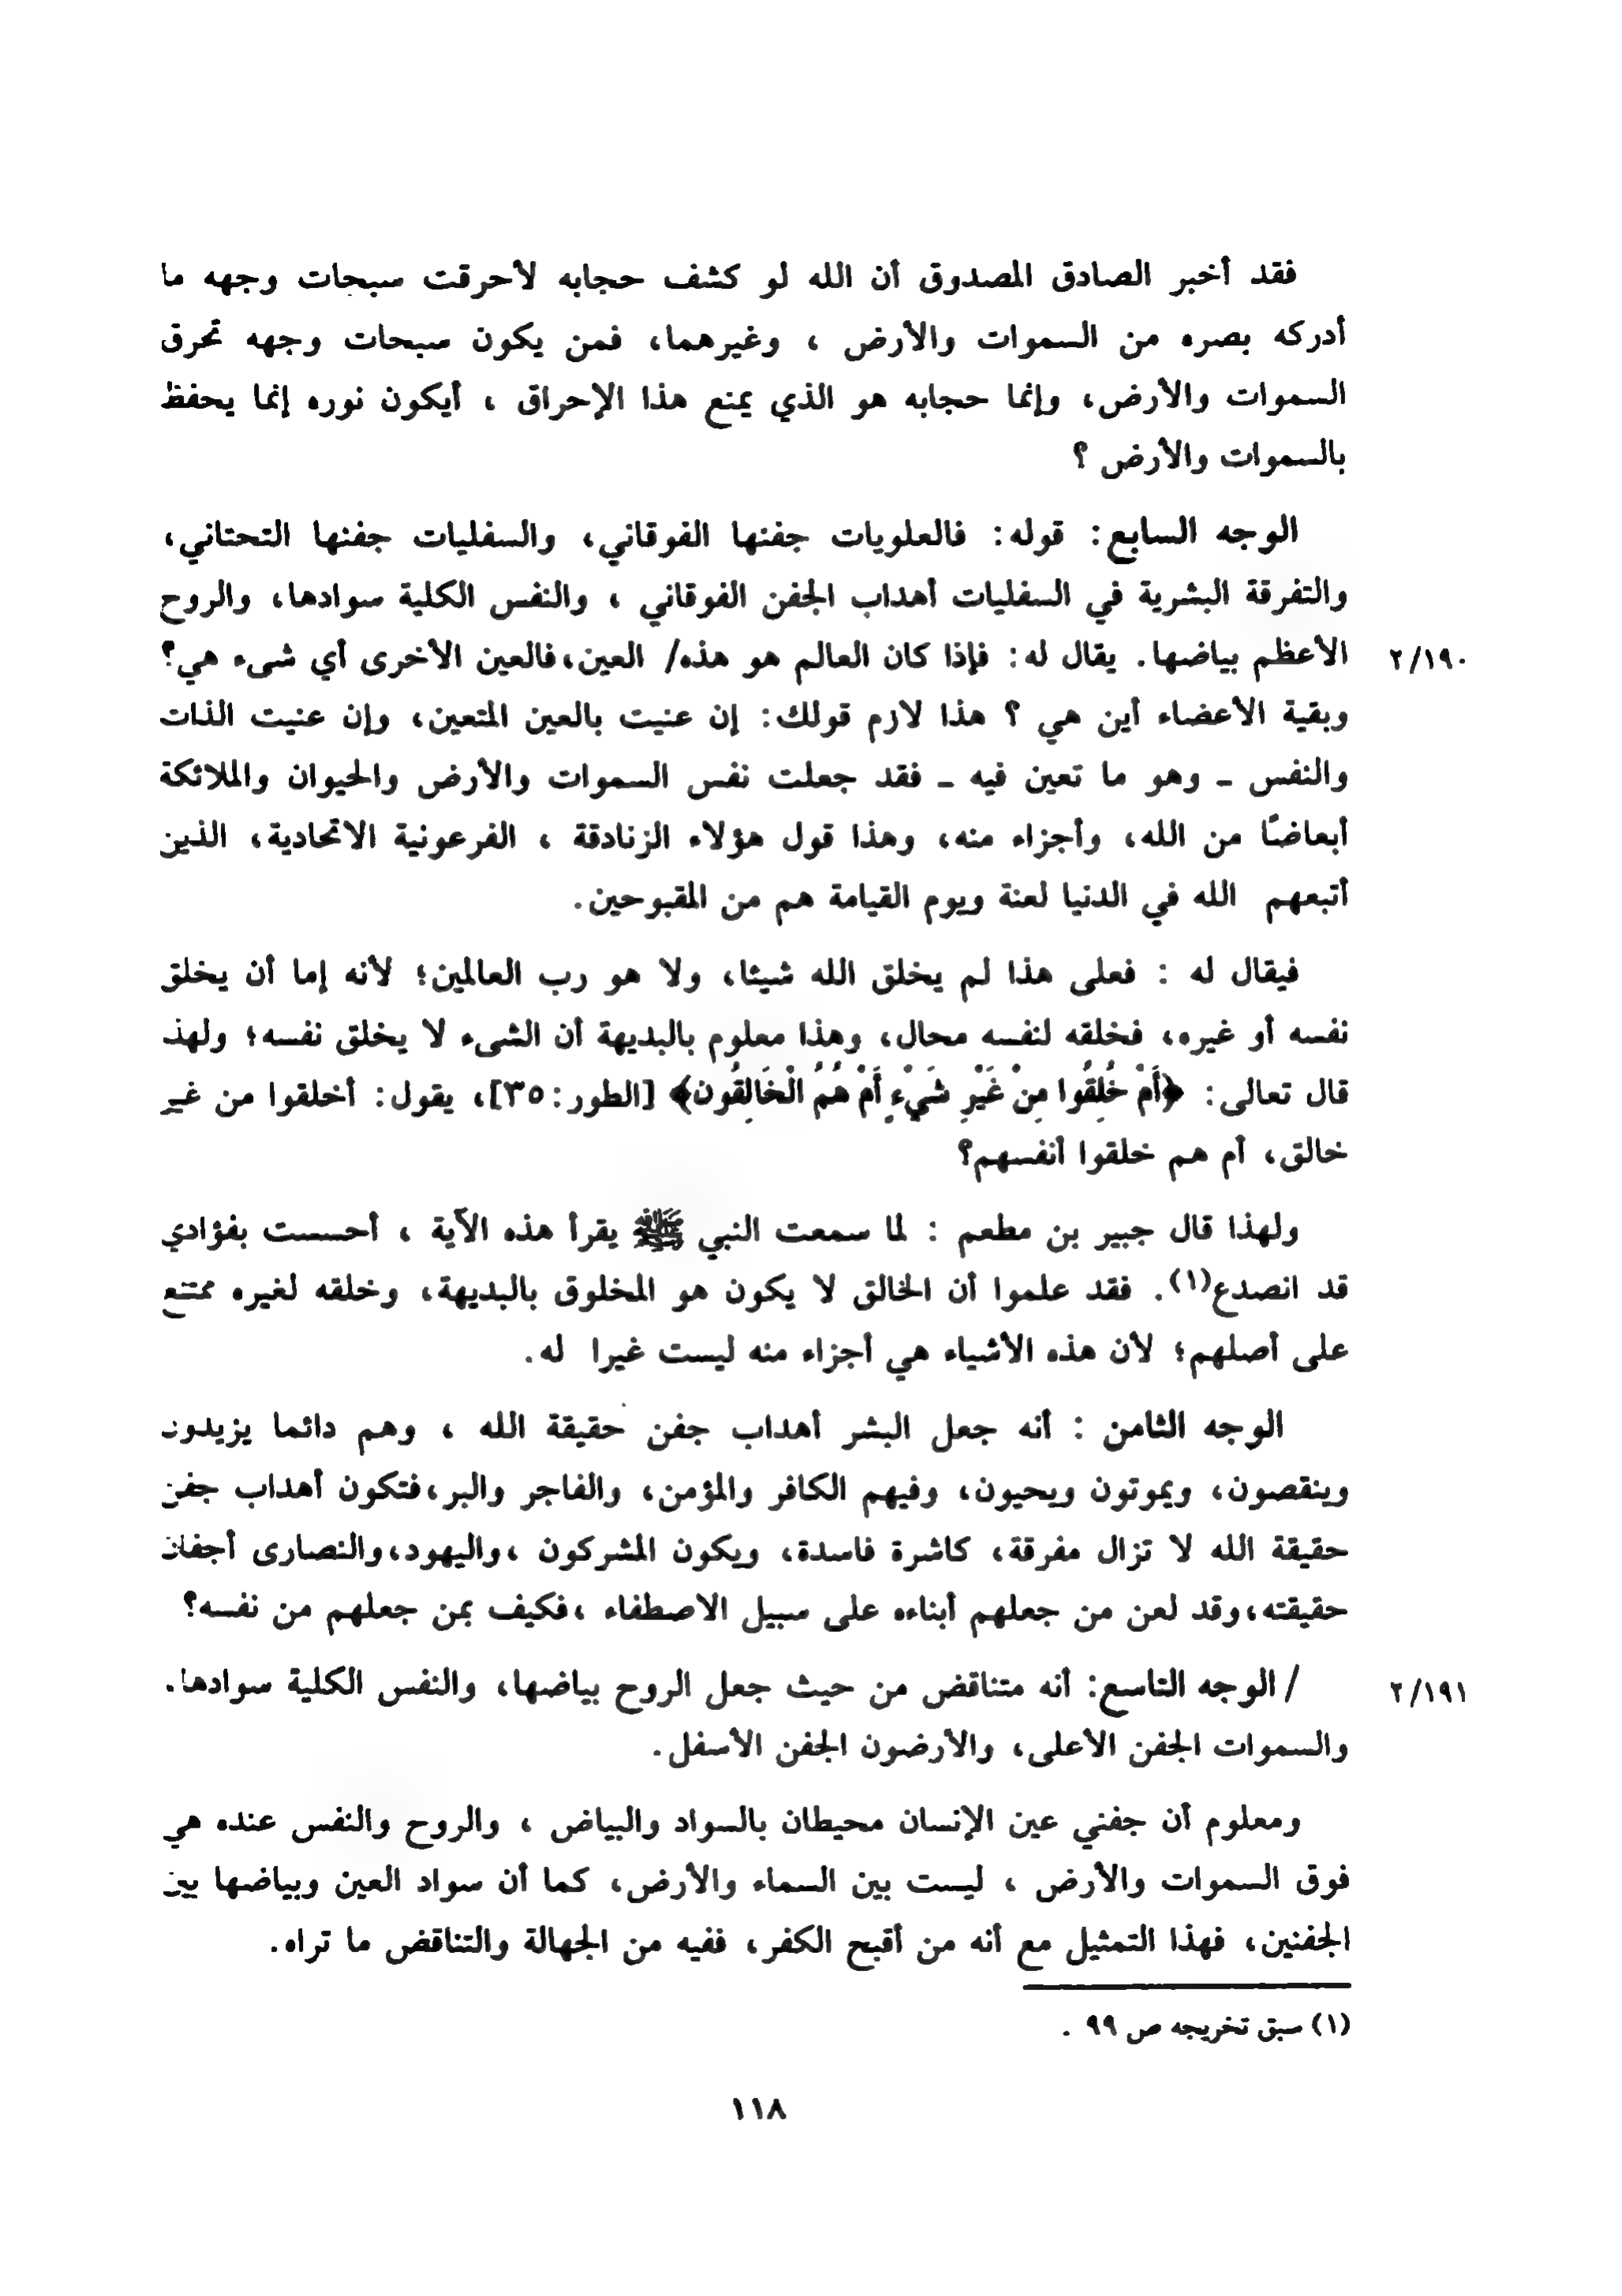 فقد أخبر الصادق المصدوق أن الله لو كشف حجابه لأحرقت سبحات وجهه ما
أدركه بصره من السموات والأرض ، وغيرهما، فمن يكون سبحات وجهه تحرق
السموات والأرض، وإنما حجابه هو الذي يمنع هذا الإحراق ، أيكون نوره إنما يحفظ
بالسموات والأرض ؟
الوجه السابع: قوله: فالعلويات جفنها الفوقاني، والسفليات جفنها التحتاني،
والتفرقة البشرية في السفليات أهداب الجفن الفوقاني ، والنفس الكلية سوادها، والروح
الأعظم بياضها. يقال له: فإذا كان العالم هو هذه/ العين،فالعين الأخرى أي شىء هي؟
٢/١٩٠
وبقية الأعضاء أين هي ؟ هذا لازم قولك: إن عنيت بالعين المتعين، وإن عنيت الذات
والنفس ـ وهو ما تعين فيه ـ فقد جعلت نفس السموات والأرض والحيوان والملائكة
أبعاضًا من الله، وأجزاء منه، وهذا قول هؤلاء الزنادقة ، الفرعونية الاتحادية، الذين
أتبعهم الله في الدنيا لعنة ويوم القيامة هم من المقبوحين.
فيقال له : فعلى هذا لم يخلق الله شيئا، ولا هو رب العالمين؛ لأنه إما أن يخلق
نفسه أو غيره، فخلقه لنفسه محال، وهذا معلوم بالبديهة أن الشىء لا يخلق نفسه؛ ولهذ
قال تعالى: ﴿أَمْ خُلِقُوا مِنْ غَيْرِ شَيْءٍ أَمْ هُمُ الْخَالِقُون﴾ [الطور:٣٥]، يقول: أخلقوا من غير
خالق، أم هم خلقوا أنفسهم؟
ولهذا قال جبير بن مطعم : لما سمعت النبي ﷺ يقرأ هذه الآية ، أحسست بفؤادي
قد انصدع(١). فقد علموا أن الخالق لا يكون هو المخلوق بالبديهة، وخلقه لغيره ممتنع
على أصلهم؛ لأن هذه الأشياء هي أجزاء منه ليست غيرا له.
الوجه الثامن : أنه جعل البشر أهداب جفن حقيقة الله ، وهم دائما يزيدون
وينقصون، ويموتون ويحيون، وفيهم الكافر والمؤمن، والفاجر والبر،فتكون أهداب جفن
حقيقة الله لا تزال مفرقة، كاشرة فاسدة، ويكون المشركون ،واليهود،والنصارى أجفان
حقيقته،وقد لعن من جعلهم أبناءه على سبيل الاصطفاء ،فكيف بمن جعلهم من نفسه؟
/ الوجه التاسع: أنه متناقض من حيث جعل الروح بياضها، والنفس الكلية سوادها.
٢/١٩١
والسموات الجفن الأعلى، والأرضون الجفن الأسفل.
ومعلوم أن جفني عين الإنسان محيطان بالسواد والبياض ، والروح والنفس عنده هي
فوق السموات والأرض ، ليست بين السماء والأرض، كما أن سواد العين وبياضها بين
الجفنين، فهذا التمثيل مع أنه من أقبح الكفر، ففيه من الجهالة والتناقض ما تراه.
(١) سبق تخريجه ص ٩٩ .
١١٨